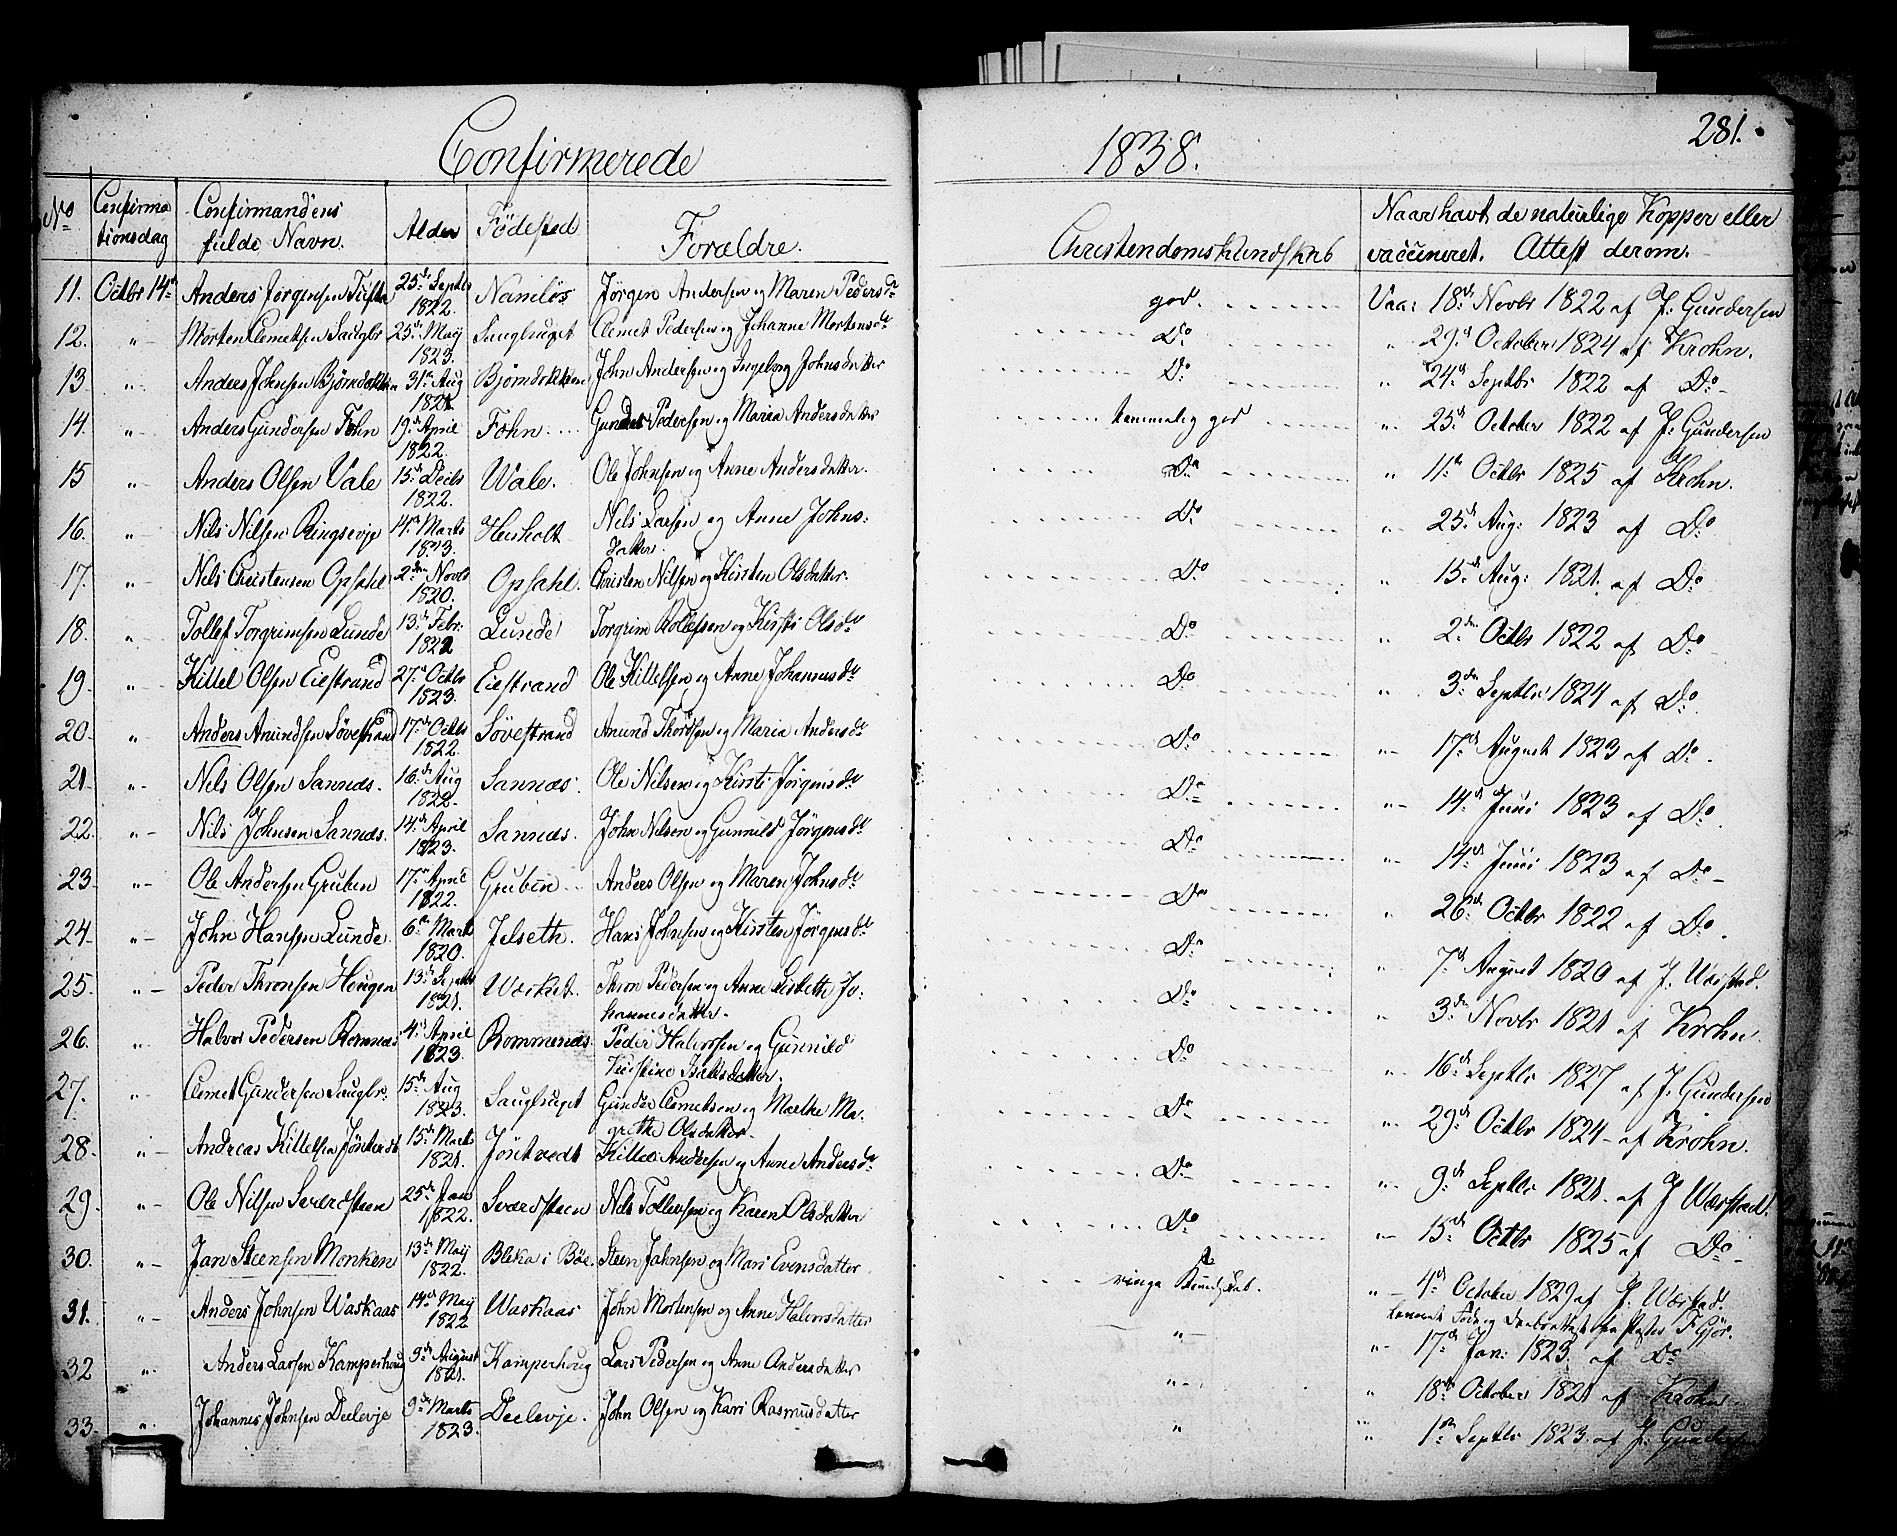 Confirmerede
1838.
281.
No Confirma Confirmandens Alder Födested Forældre. Christendomskundskab Naar havt de naturlige Kopper eller
tionsdag fulde Navn. vaccineret. Attest derom.
11. Octbr 14de Anders Jörgensen 25de Septbr Namlös Jörgen Andersen og Maren Pedersdr god. Vaa: 18de Novbr 1822 af J. Gundersen
1822.
12. " Morten Clemetsen Saugbr 25de Maij Saugbruget Clemet Pedersen og Johanne Mortensdr Do " 29de October 1824 af Krohn.
1823.
13 " Anders Johnsen Björndokken 31te Aug Björndokken John Andersen og Ingeborg Johnsdatter Do " 24de Septbr 1822 af Do
1821
14. " Anders Gundersen Fohn 19de April Fohn Gunder Pedersen og Maria Andersdatter temmelig god " 25de October 1822 af J. Gundersen
1822.
15 " Anders Olsen Vale 15de Decbr Wale. Ole Johnsen og Anne Andersdatter. Do " 11te Octbr 1825 af Krohn.
1822.
16. " Nils Nilsen Ringsevje 14de Marts Heisholt Nels Larsen og Anne Johns: Do " 25de Aug: 1823 af Do
1823. datter.
17. " Nels Christensen Opsahl 2den Novbr Opsahl. Christen Nilsen og Kirsten Olsdatter. Do " 15de Aug: 1821. af Do
1820.
18. " Tollef Torgrimsen Lunde 13de Febr: Lunde Torgrim Rollefsen og Kirsti Olsdr Do " 2den Octbr 1822 af Do
1822
19. " Kittel Olsen Eiestrand 27de Octbr Eiestrand Ole Kittelsen og Anne Johannesdr Do " 3die Septbr 1824 af Do
1823.
20. " Anders Amundsen Sövestrand 17de Octbr Sövestrand Amund Thordsen og Maria Andersdr Do " 17de August 1823 af Do
1822.
21. " Nels Olsen Sannæs. 16de Aug Sannæs. Ole Nilsen og Kirsti Jörgensdr Do " 14de Juni 1823 af Do
1822.
22. " Nils Johnsen Sannæs. 14de April Sannæs. John Nilsen og Gunnild Jörgensdr Do " 14de Juni 1823 af Do
1823.
23. " Ole Andersen Gruben 17de April Gruben Anders Olsen og Maren Johnsdr Do " 26de Octbr 1822 af Do
1822.
24. " John Hansen Lunde 6te Marts Jelseth. Hans Johnsen og Kirsten Jörgensdr Do " 7de August 1820 af J. Værstad.
1820.
25. " Peder Thronsen Haugen 13de Septbr Værket. Thron Pedersen og Anne Lisbeth Jo: Do " 3die Novbr 1821 af Krohn
1821. hannesdatter.
26. " Halvor Pedersen Romnæs 4de April Rommenæs. Peder Halvorsen og Gunnild Do " 16de Septbr 1827 af J. Gundersen
1823. Kirstine Isaksdatter.
27. " Clemet Gundersen Saugbr. 15de Aug Saugbruget Gunder Clemetsen og Marthe Ma: Do " 29de Octbr 1824 af Krohn.
1823. grethe Olsdatter.
28. " Andreas Kittelsen Jöntvedt 15de Marts Jöntvedt Kittel Andersen og Anne Andersdr Do " 9de Septbr 1821. af J Værstad.
1821.
29. " Ole Nilsen Sværdsteen 25de Jan Sværdsteen Nils Tollevsen og Karen Olsdatter Do " 15de Octbr 1825 af Do
1822.
30. " Jan Steensen Monken 13de Maij Bleka i Böe. Steen Jahnsen og Mari Evensdatter ringe Kundskab. " 4de October 1829 af J. Værstad.
1822.
31. " Anders Johnsen Waskaas 14de Maij Waskaas John Mortensen og Anne Halvorsdatter " " 17de Jan: 1823. af Do
1822
32 " Anders Larsen Kamperhoug 9de August Kamperhoug Lars Pedersen og Anne Andersdatter " " 18de October 1821 af Krohn
1821.
33. " Johannes Johnsen Deelevje 9de Marts Deelevje. John Olsen og Kari Rasmusdatter " " 1ste Septbr 1823. af J. Gunders
1823.